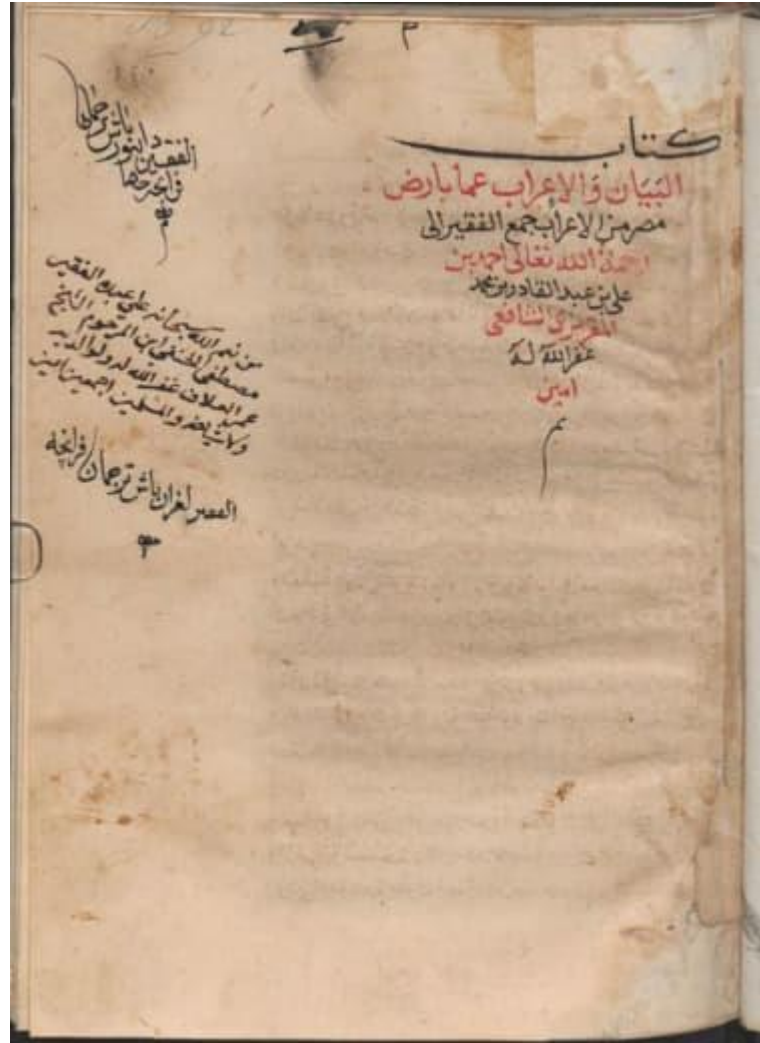 م
كتاب
البَيَان وَالإعراب عما بارض
مصر من الاعراب جمع الفقير الى
رحمة الله تعالى احمد بن
على بن عبد القادر بن محمد
المقريزي الشافعى
غفر الله له
امين
تم
الفقير
باش ترجمان
من نعم الله سبحانه على عبده الفقير
مصطفى الحنفى ابن المرحوم الشيخ
عمر العلاف غفر الله له ولوالديه
ولمشايخه والمسلمين اجمعين امين
الفقير باش ترجمان فرانچه